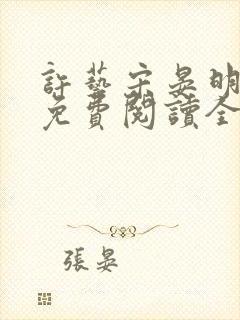 許藝宋晏明
免費閱讀全
張晏